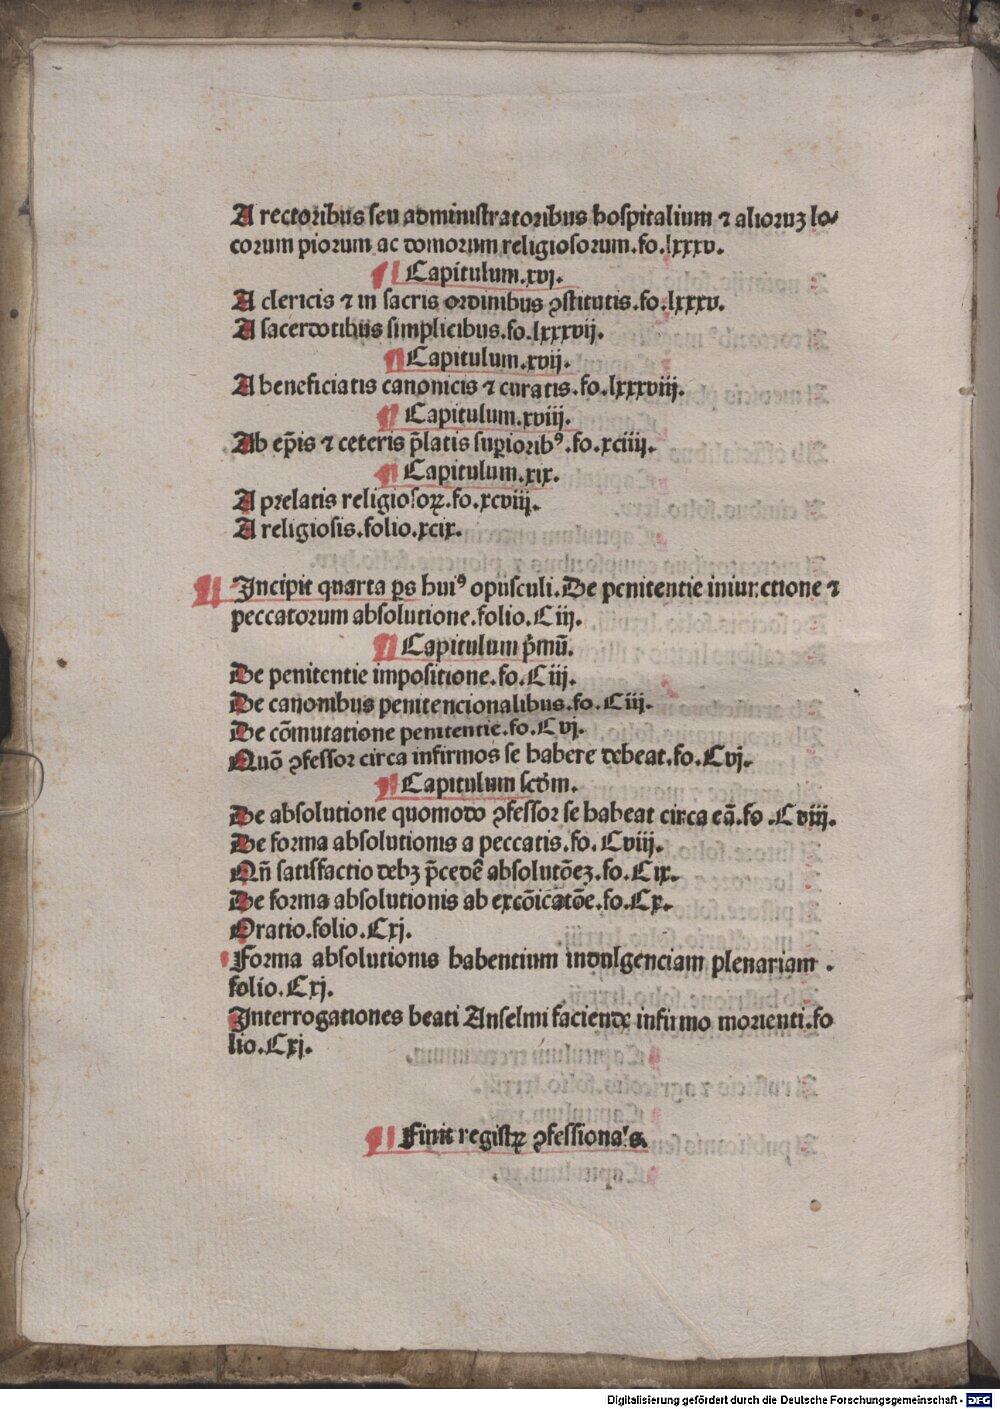 A rectoribus seu administratoribus hospitalium ⁊ alioruꝫ lo⸗
corum piorum ac domorum religiosorum.fo.lxxxv.
¶ Capitulum.xvj.
A clericis ⁊ in sacris ordinibus ꝯstitutis.fo.lxxxv.
A sacerdotibus simplicibus.fo.lxxxvij.
¶ Capitulum.xvij.
A beneficiatis canonicis ⁊ curatis.fo.lxxxviij.
¶ Capitulum.xviij.
Ab ep̄is ⁊ ceteris p̄latis suꝑioribꝰ.fo.xciiij.
¶ Capitulum.xix.
A prelatis religiosoꝝ.fo.xcviij.
A religiosis.folio.xcix.
¶ Incipit quarta ꝑs huiꝰ opusculi.De penitentie iniunctione ⁊
peccatorum absolutione.folio.Ciij.
¶ Capitulum p̄mū.
De penitentie impositione.fo.Ciij.
De canonibus penitencionalibus.fo.Ciij.
De cōmutatione penitentie.fo.Cvj.
Quō ꝯfessor circa infirmos se habere debeat.fo.Cvj.
¶ Capitulum scd̄m.
De absolutione quomodo ꝯfessor se habeat circa eā.fo.Cviij.
De forma absolutionis a peccatis.fo.Cviij.
Qn̄ satisfactio debꝫ p̄cedē absolutōeꝫ.fo.Cix.
De forma absolutionis ab excōicatōe.fo.Cx.
Oratio.folio.Cxj.
Forma absolutionis habentium indulgenciam plenariam.
folio.Cxj.
Interrogationes beati Anselmi faciende infirmo morienti.fo
lio.Cxj.
¶ Finit registꝝ ꝯfessionalis.
Digitalisierung gefördert durch die Deutsche Forschungsgemeinschaft - DFG